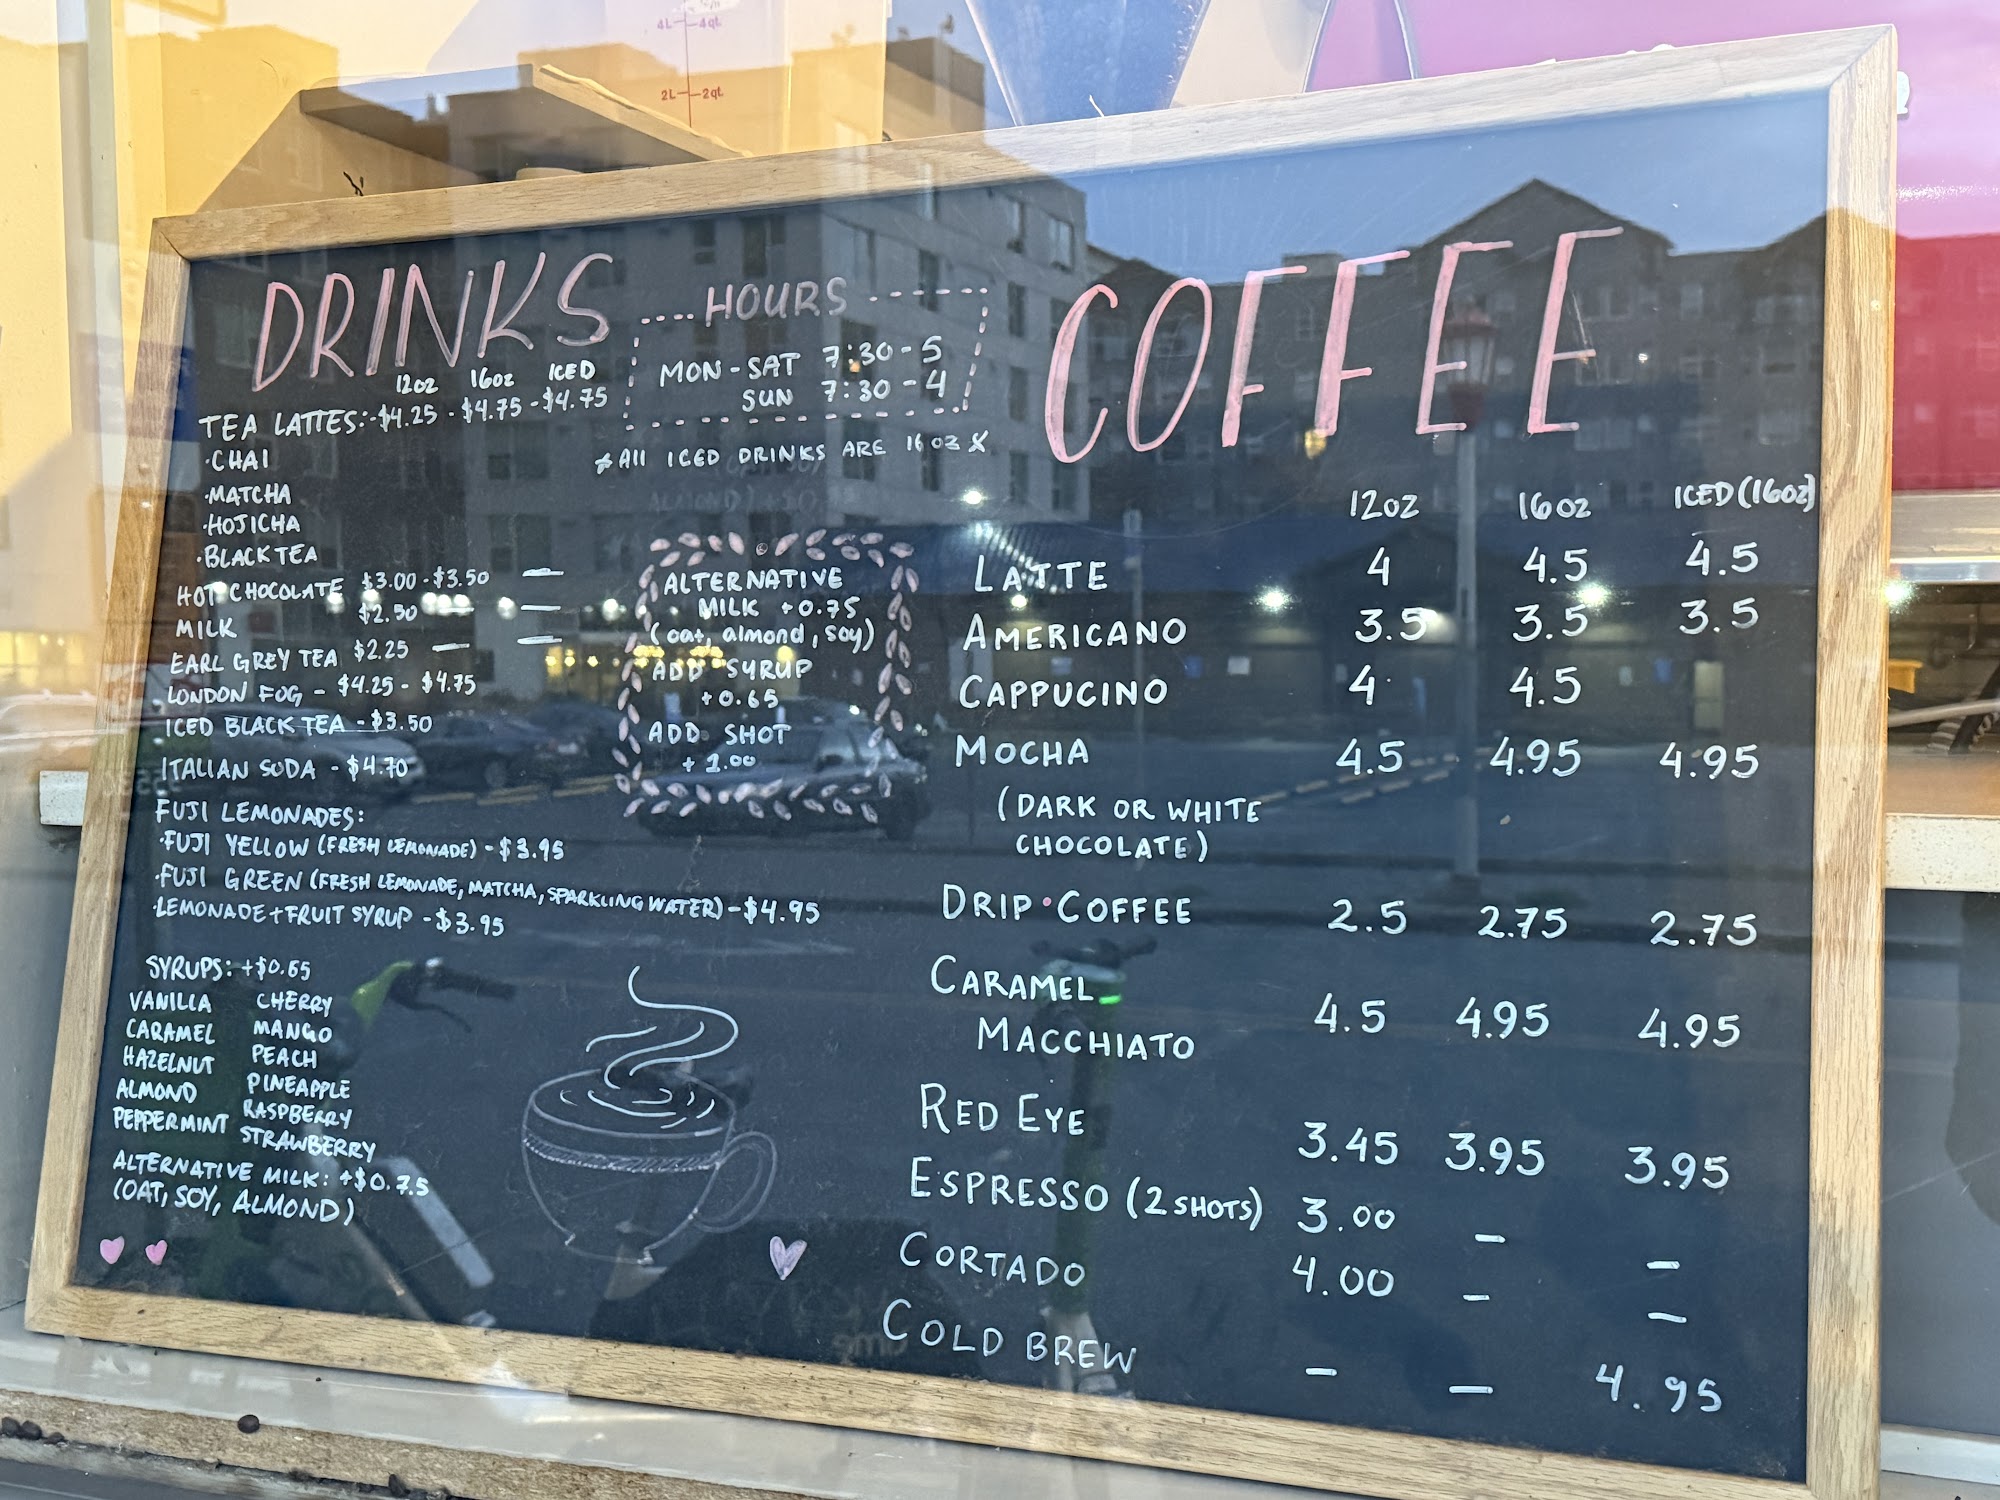 4L 4qt
2L 2qt
DRINKS
12oz 16oz ICED
TEA LATTES:-$4.25 - $4.75 - $4.75
·CHAI
·MATCHA
·HOJICHA
·BLACK TEA
HOT CHOCOLATE $3.00 - $3.50 —
MILK $2.50 — —
EARL GREY TEA $2.25 — —
LONDON FOG - $4.25 - $4.75
ICED BLACK TEA - $3.50
ITALIAN SODA - $4.70
FUJI LEMONADES:
·FUJI YELLOW (FRESH LEMONADE) - $3.95
·FUJI GREEN (FRESH LEMONADE, MATCHA, SPARKLING WATER) - $4.95
·LEMONADE + FRUIT SYRUP - $3.95
SYRUPS: +$0.65
VANILLA CHERRY
CARAMEL MANGO
HAZELNUT PEACH
ALMOND PINEAPPLE
PEPPERMINT RASPBERRY
STRAWBERRY
ALTERNATIVE MILK: +$0.75
(OAT, SOY, ALMOND)
HOURS
MON - SAT 7:30 - 5
SUN 7:30 - 4
*All ICED DRINKS ARE 16oz*
ALTERNATIVE
MILK +0.75
(oat, almond, soy)
ADD SYRUP
+0.65
ADD SHOT
+ 1.00
COFFEE
12oz 16oz ICED (16oz)
LATTE 4 4.5 4.5
AMERICANO 3.5 3.5 3.5
CAPPUCINO 4 4.5
MOCHA 4.5 4.95 4.95
(DARK OR WHITE
CHOCOLATE)
DRIP·COFFEE 2.5 2.75 2.75
CARAMEL
MACCHIATO 4.5 4.95 4.95
RED EYE 3.45 3.95 3.95
ESPRESSO (2 SHOTS) 3.00 – –
CORTADO 4.00 – –
COLD BREW – – 4.95